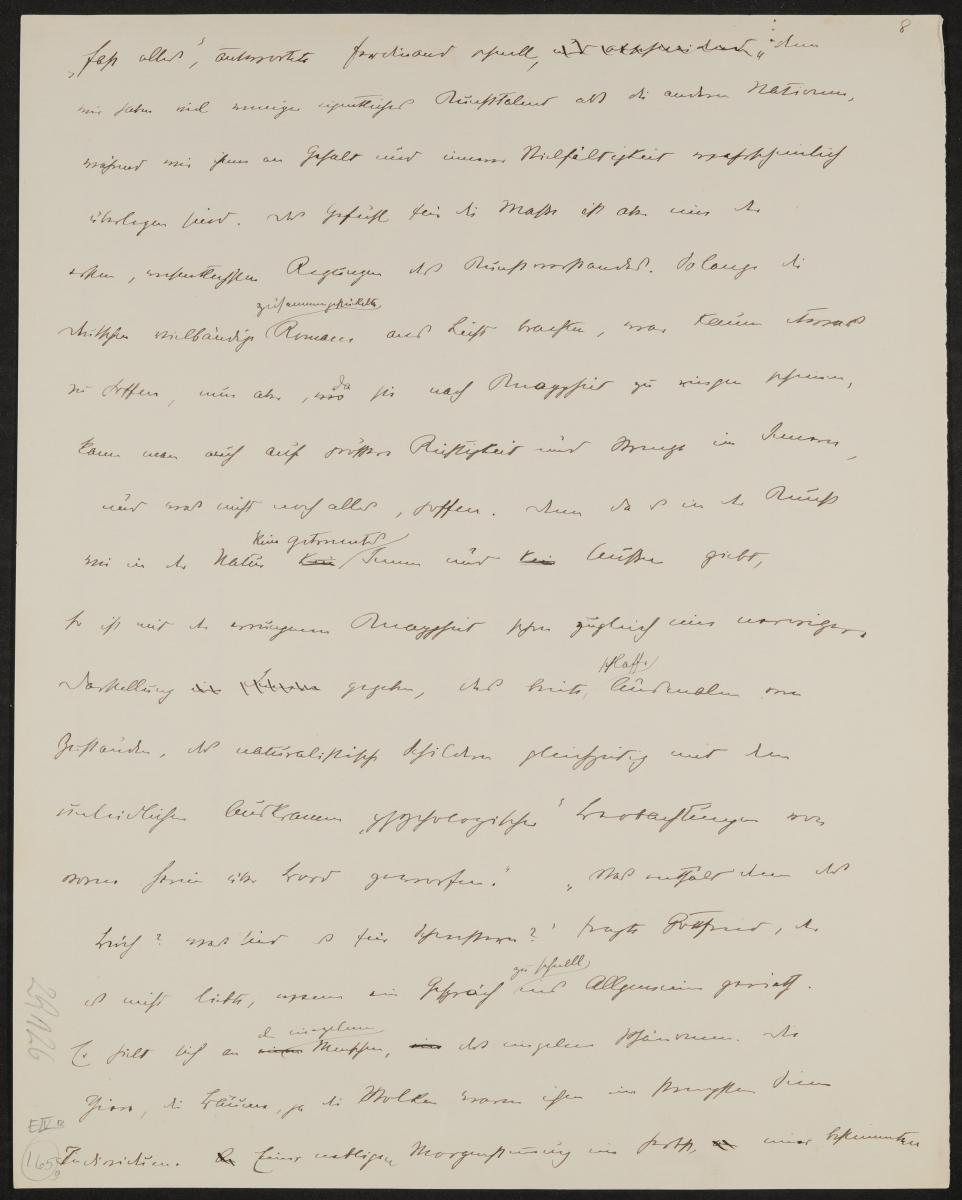 8
„Fast alles“, antwortete Ferdinand schnell, „denn
wir haben viel weniger eigentliches Kunsttalent als die anderen Nationen,
während wir ihnen an Gehalt und innerer Vielfältigkeit wahrscheinlich
überlegen sind. Das Gefühl für die Masse ist aber eins der
ersten, wesentlichsten Regungen des Kunstverstandes. Solange die
zusammengestückelte
Deutschen vielbändige Romane ans Licht brachten, war kaum etwas
zu hoffen, nun aber, wo da sie nach Knappheit zu ringen scheinen,
kann man auch auf größere Richtigkeit und Strenge im Innern,
und was nicht noch alles, hoffen. Denn da es in der Kunst
kein getrenntes
wie in der Natur kein Innen und kein Außen giebt,
so ist mit der errungenen Knappheit schon zugleich eine
schlaffe
Darstellung gegeben, das breite, Ausmalen von
Zuständen, das naturalistische Schildern gleichzeitig mit dem
unleidlichen Auskramen „psychologischer“ Beobachtungen von
vorne herein über Bord geworfen.“ „Was enthält denn das
Buch? was sind es für ?“ fragte Gottfried, der
zu schnell
es nicht liebte, wenn ein Gespräch ins Allgemeine geriet.
d einzelnen
Er hielt sich an einen Menschen, das einzelne Phänomen. Die
Tiere, die Bäume, ja die Wolken waren ihm im strengsten Sinne
Individuen. Einer nebligen Morgenstimmung im Herbst, einer bestimmten
29126
E IV B
165
9